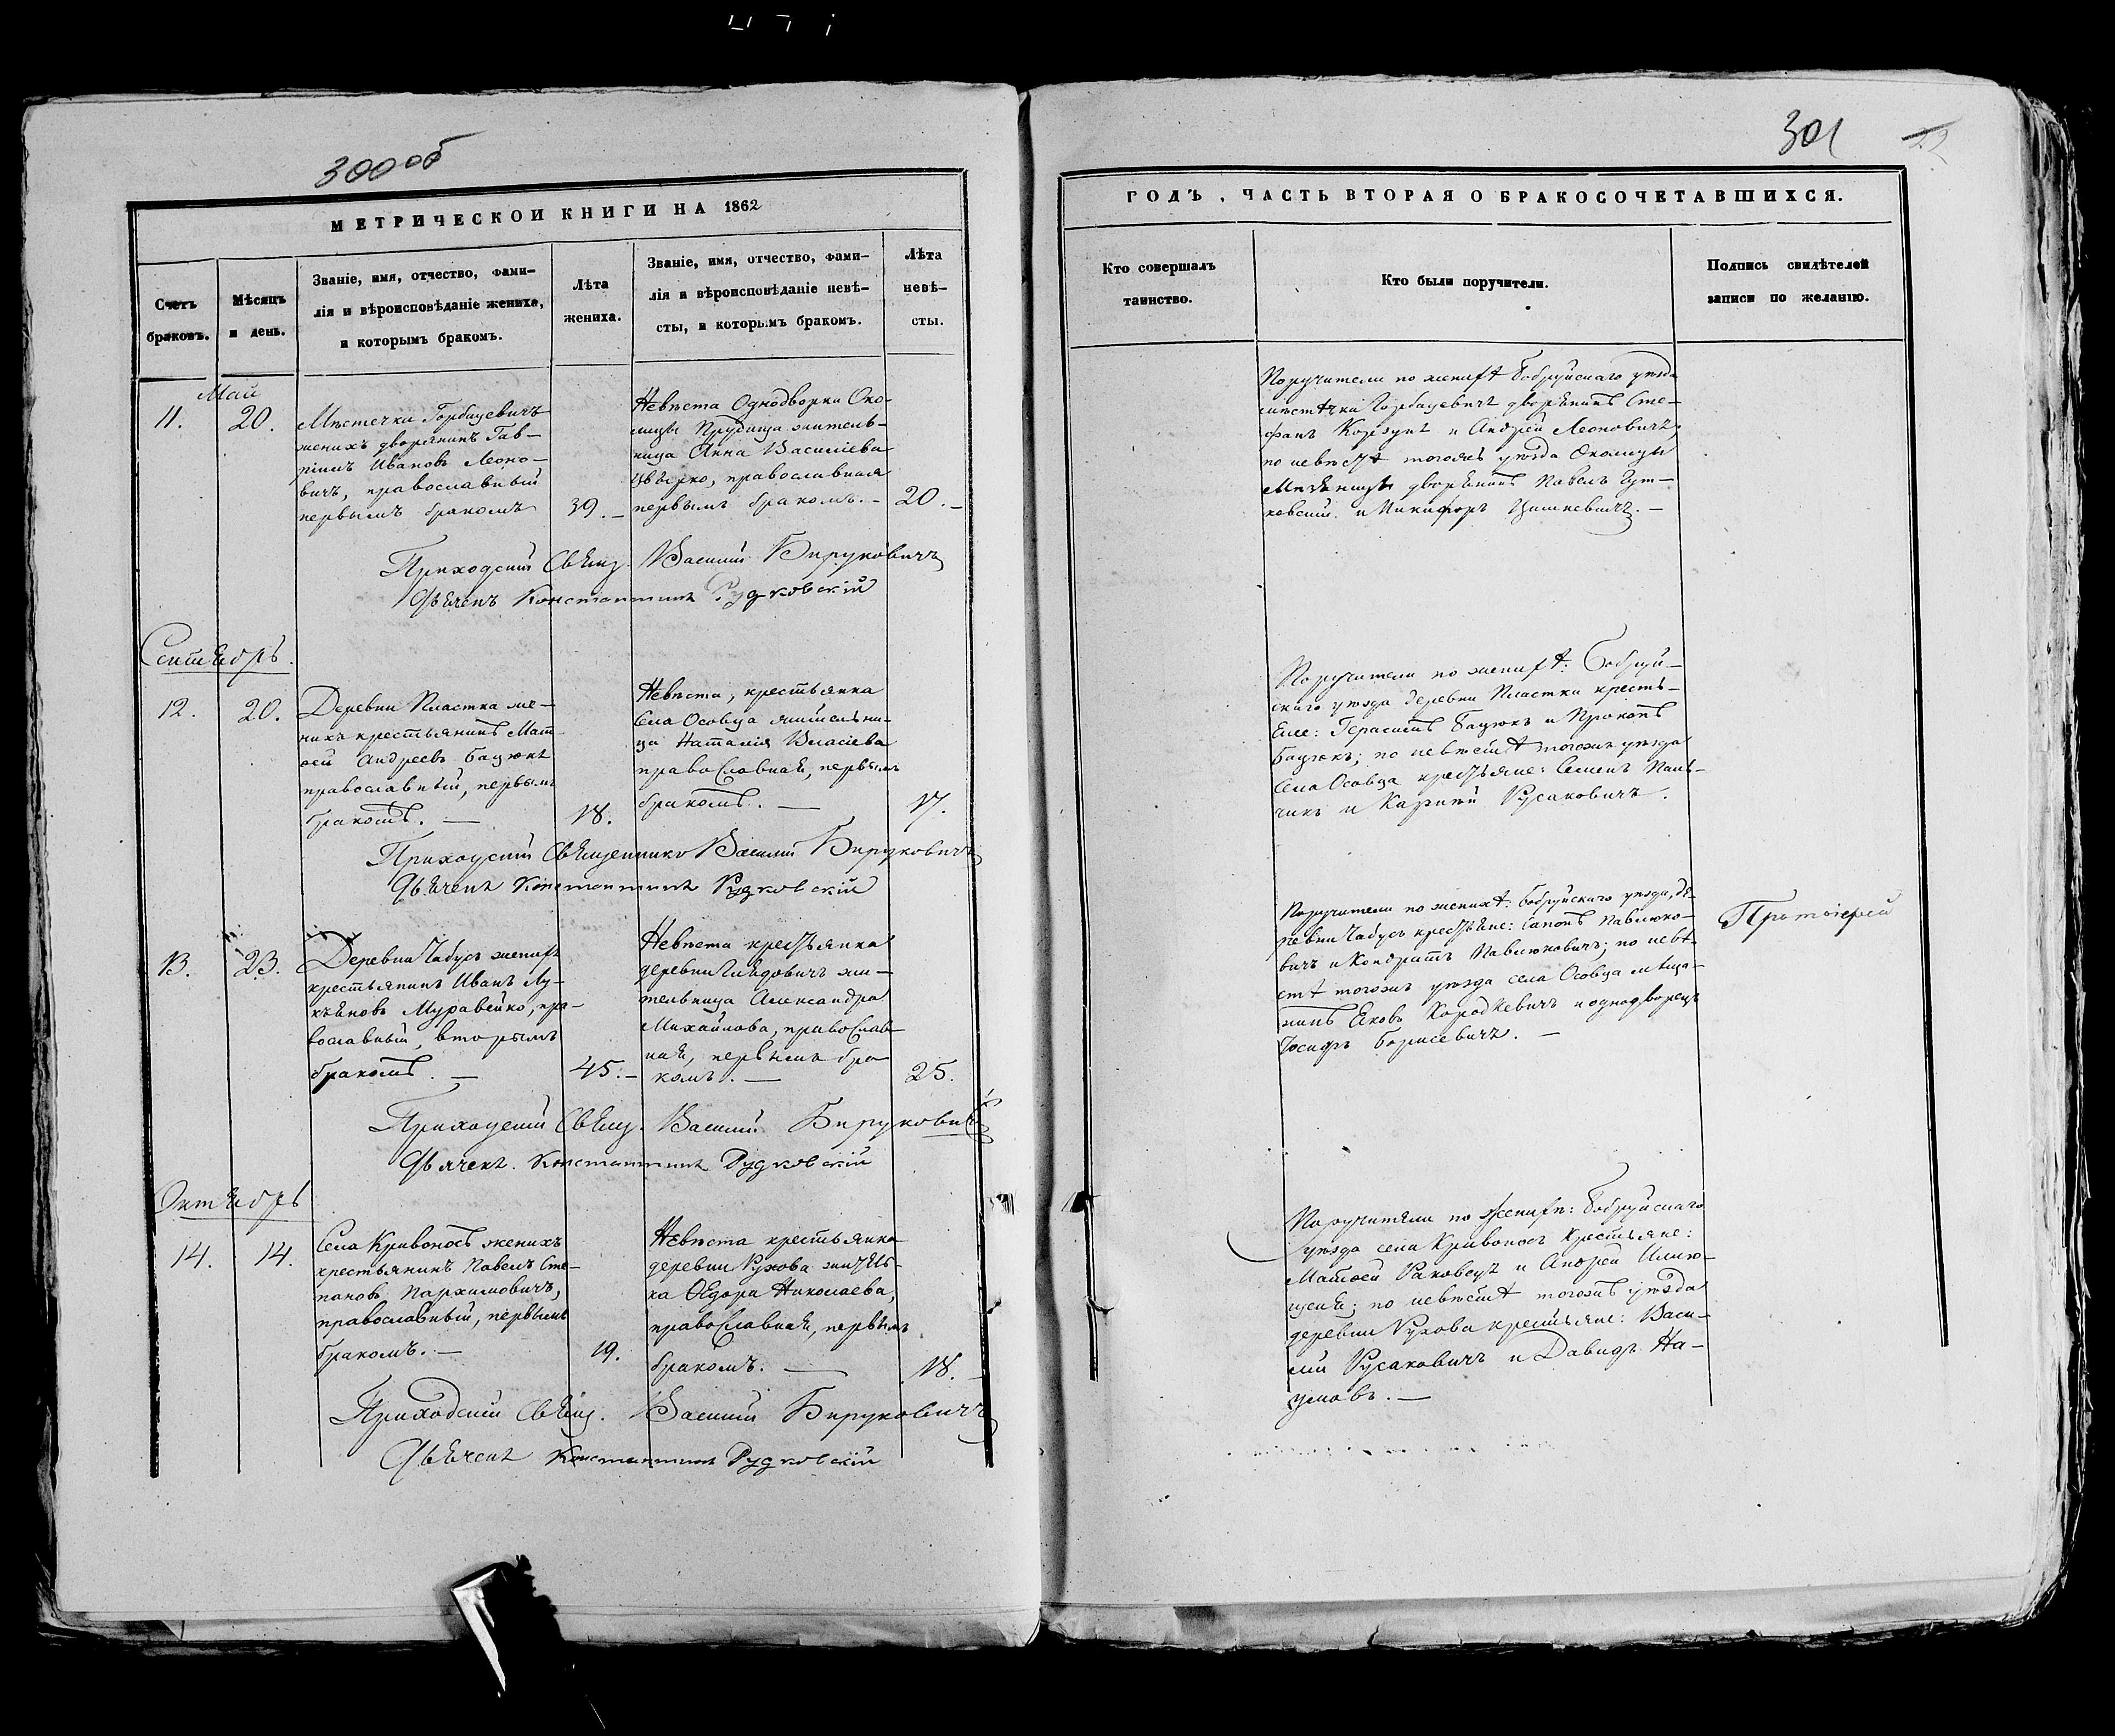 300об
МЕТРИЧЕСКОЙ КНИГИ НА 1862
Счетъ
браковъ.
Мѣсяцъ
и день.
Званіе, имя, отчество, фами-
лія и вѣроисповѣданіе жениха,
и которымъ бракомъ.
Лѣта
жениха.
Званіе, имя, отчество, фами-
лія и вѣроисповѣданіе невѣ-
сты, и которымъ бракомъ.
Лѣта
невѣ-
сты.
Май
11.
20.
Мѣстечка Горбацевичъ
женихъ дворянинъ Гав-
ріилъ Ивановъ Леоно-
вичъ, православный
первымъ бракомъ
39.
Невѣста Однодворка Око-
лицы Прудища житель-
ница Анна Василіева
православная
первымъ бракомъ.
20.
Приходскій Свящ. Василій Бируковичъ
Дьячекъ Константинъ Рудковскій
Сентябрь.
12.
20.
Деревни Пластка же-
нихъ крестьянинъ Мат-
ѳей Андреевъ Бацюкъ
православный, первымъ
бракомъ.
18.
Невѣста, крестьянка
Села Особца жительни-
ца Наталія Власіева
православная, первымъ
бракомъ.
17.
Приходскій Священникъ Василій Бируковичъ
Дьячекъ Константинъ Рудковскій
13.
23.
Деревни Чабусъ женихъ
крестьянинъ Иванъ Лу-
кьяновъ Муравейко, пра-
вославный, вторымъ
бракомъ.
45.
Невѣста крестьянка
деревни жи-
тельница Александра
Михайлова, православ-
ная, первымъ бра-
комъ.
25.
Приходскій Свящ. Василій Бируковичъ
Дьячекъ Константинъ Рудковскій
Октябрь
14.
14.
Села Кривоносъ женихъ
крестьянинъ Павелъ Сте-
пановъ Пархимовичъ,
православный, первымъ
бракомъ.
19.
Невѣста крестьянка
деревни Рухова житель-
ка Ѳедора Николаева,
православная, первымъ
бракомъ.
18.
Приходскій Свящ. Василій Бируковичъ
Дьячекъ Константинъ Рудковскій
301
ГОДЪ, ЧАСТЬ ВТОРАЯ О БРАКОСОЧЕТАВШИХСЯ.
Кто совершалъ
таинство.
Кто были поручители.
Подпись свидѣтелей
записи по желанію.
Поручители по женихѣ Бобруйскаго уѣзда
мѣстечка Горбацевичъ дворянинъ Сте-
фанъ Корзунъ и Андрей Леоновичъ;
по невѣстѣ тогожъ уѣзда Околицы
дворянинъ Павелъ Гут-
ковскій и Никифоръ Цишкевичъ.
Поручители по женихѣ: Бобруй-
скаго уѣзда деревни Пластки кресть-
яне: Герасимъ Бацюкъ и Прокопъ
Бацюкъ; по невѣстѣ тогожъ уѣзда
Села Особца крестьяне: Семенъ Паль-
чикъ и Карпій Русаковичъ.
Поручители по женихѣ: Бобруйскаго уѣзда, де-
ревни Чабусъ крестьяне: Сапонъ Павлюко-
вичъ и Кондратъ Павлюковичъ; по невѣ-
стѣ тогожъ уѣзда села Особца мѣща-
нинъ Яковъ Короткевичъ и однодворецъ
Іосифъ Борисевичъ.
Протоіерей
Поручители по женихѣ: Бобруйскаго
уѣзда села Кривоносъ Крестьяне:
Матѳей Раковецъ и Андрей
по невѣстѣ тогожъ уѣзда
деревни Рухова крестьяне: Васи-
лій Русаковичъ и Давидъ На-
умовъ.